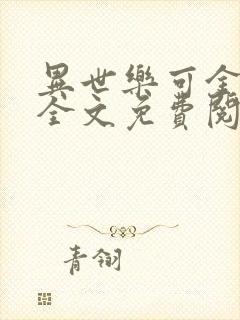 異世樂可全
全文免費閱
青翎